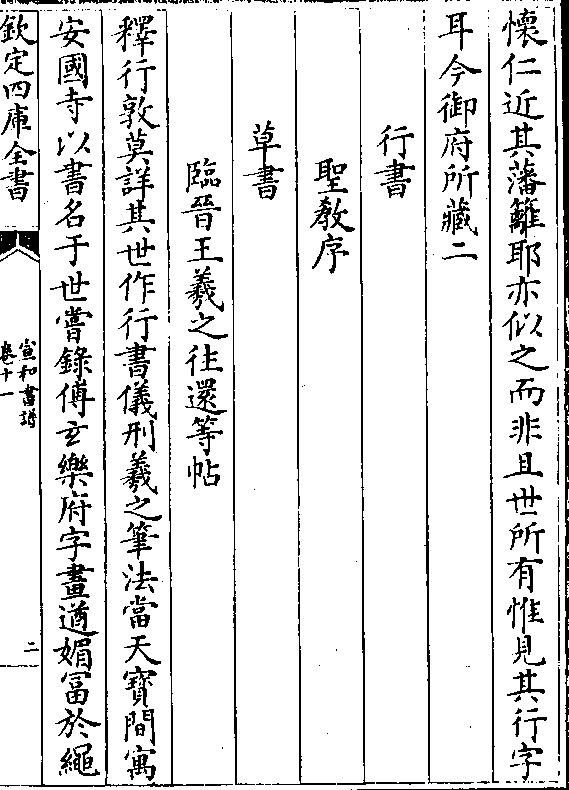 懷仁近其藩籬耶亦似之而非且世所有惟見其行字
耳今御府所藏二
行書
聖教序
草書
臨晉王羲之往還等帖
釋行敦莫詳其世作行書儀刑羲之筆法當天寶間寓
安國寺以書名于世嘗錄傅玄樂府字畫遒媚富於繩
欽定四庫全書
宣和書譜
卷十一
二